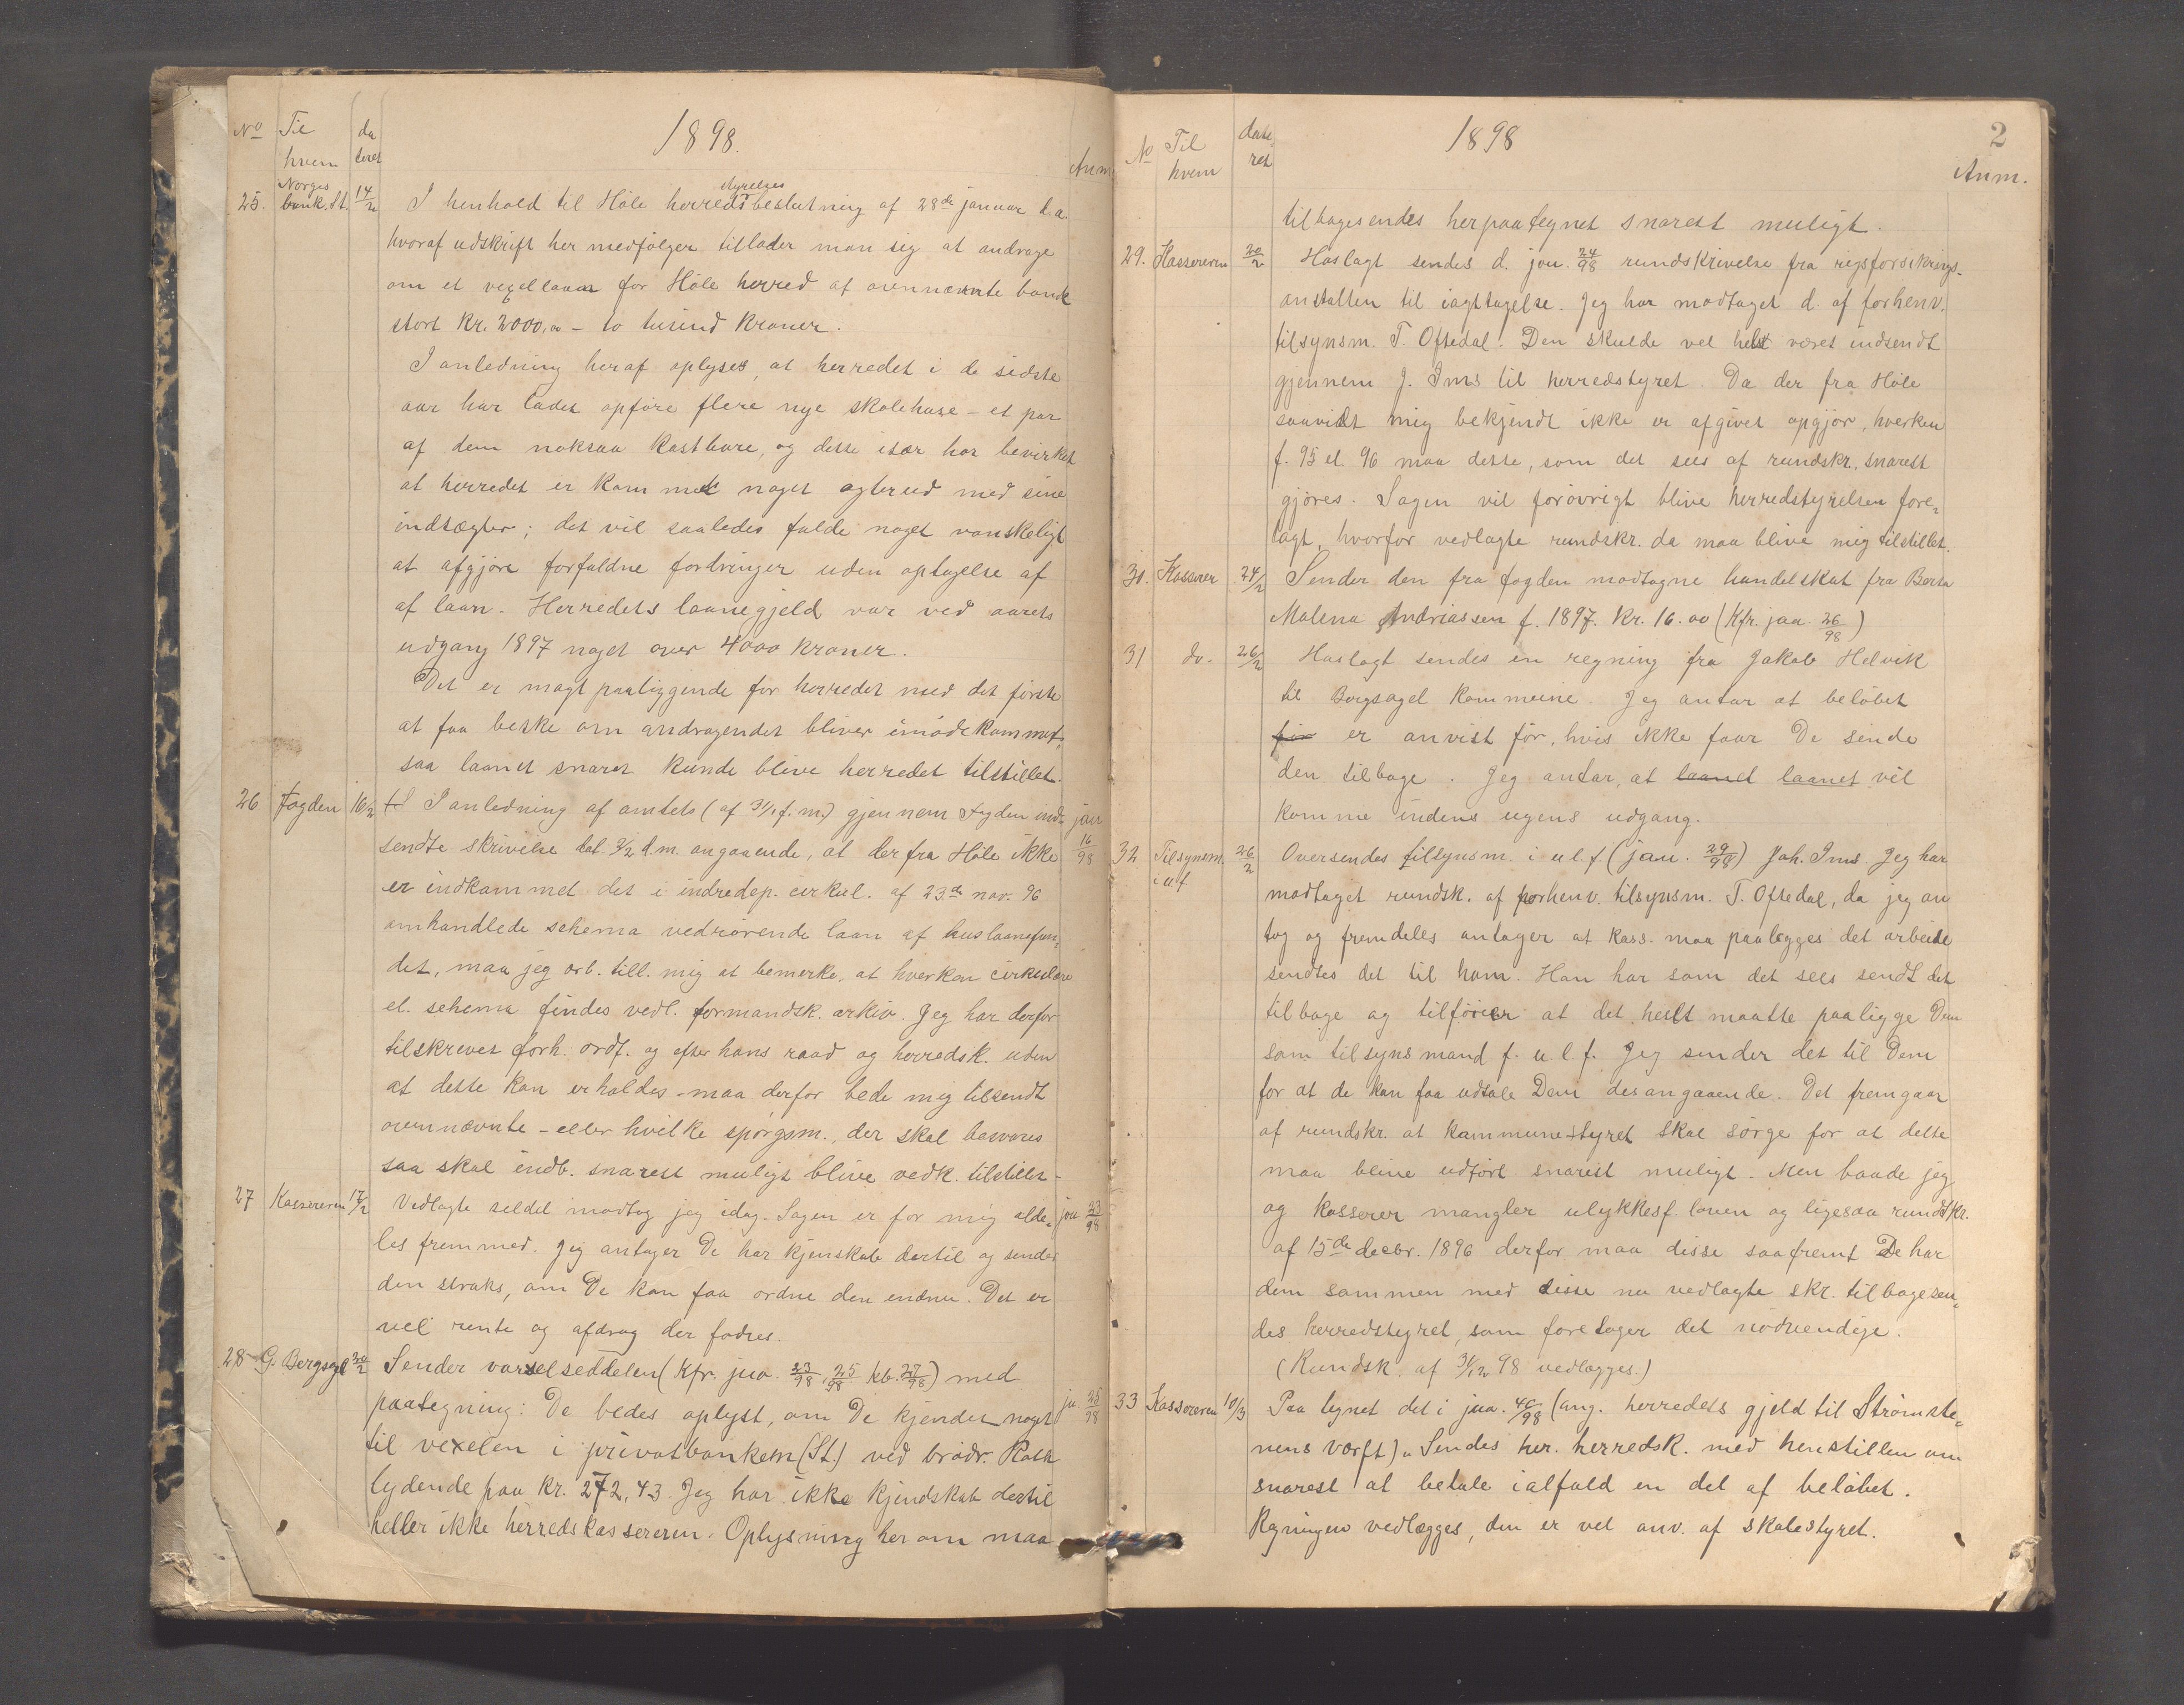 1898.
No Til hvem dateret Anm.
25. Norges bank. St. 14/2 I henhold til Höle herredsstyrelses beslutning af 28de januar d.a.
hvoraf udskrift her medfölger tillader man sig at andrage
om et vexellaan for Höle herred af ovennævnte bank
stort Kr. 2000,00 - to tusind Kroner.
I anledning heraf oplyses, at herredet i de sidste
aar har ladet opföre flere nye skolehuse - et par
af dem noksaa kostbare, og dette især har bevirket
at herredet er kommet noget agterud med sine
indtægter; det vil saaledes falde noget vanskeligt
at afgjöre forfaldne fordringer uden optagelse af
af laan. Herredets laanegjeld var ved aarets
udgang 1897 noget over 4000 kroner.
Det er magtpaaliggende for herredet med det förste
at faa beske om andragendet bliver imödekommet,
saa laanet snaret kunde blive herredet tilstillet.
26 Fogden 16/2 I anledning af amtets (af 31/1 f.m.) gjennem fogden ind- jou
sendte skrivelse dat. 3/2 d.m. angaaende, at der fra Höle ikke 16/98
er indkommet det i indredep. cirkul. af 23de nov. 96
omhandlede schema vedrörende laan af huslaanefon-
det, maa jeg ærb. till. mig at bemerke, at hverken cirkulære
el. schema findes vedl. formandsk. arkiv. Jeg har derfor
tilskrevet forh. ordf. og efter hans raad og herredsk. uden
at dette kan erholdes - maa derfor bede mig tilsendt
ovennævnte - eller hvilke spörgsm., der skal besvares
saa skal indb. snarest muligt blive vedk. tilstillet -
27 Kassereren 17/2 Vedlagte seddel modtog jeg idag. Sagen er for mig alde- jou 23/98
les fremmed. Jeg antager De har kjenskab dertil og sender
den straks, om De kan faa ordne den endnu. Det er
vel rente og afdrag der fodres.
28 G. Bergsagel 20/2 Sender varselseddelen (Kfr. jua. 23/98, 25/98 kb. 27/98) med
paategning: De bedes oplyst, om De kjender noget ju. 25/98
til vexelen i privatbanken (St.) ved brödr.
lydende paa Kr. 272,43. Jeg har ikke kjendskab dertil
heller ikke herredskassereren. Oplysning her om maa
1898
2
No Til hvem dateret Anm.
tilbagesendes herpaategnet snarest muligt.
29. Kassereren 20/2 Hoslagt sendes d. jou. 24/98 rundskrivelse fra rigsforsikrings-
anstalten til iagttagelse. Jeg har modtaget d. af forhenv.
tilsynsm. T. Oftedal. Den skulde vel helst været indsendt
gjennem J. Ims til herredstyret. Da der fra Höle
saavidt mig bekjendt ikke er afgivet opgjör, hverken
f. 95 el. 96 maa dette, som det sees af rundskr. snarest
gjöres. Sagen vil forövrigt blive herredstyrelsen fore-
lagt, hvorfor vedlagte rundskr. da maa blive mig tilstillet.
30. Kasserer 24/2 Sender den fra fogden modtagne handelskat fra Berta
Malena Andriassen f. 1897. Kr. 16.00 (Kfr. jaa. 26/98)
31 do. 26/2 Hoslagt sendes en regning fra Jakob Helvik
til Borgsagel Kommune. Jeg antar at belöbet
för er anvist för, hvis ikke faar De sende
den tilbage. Jeg antar, at laand laanet vil
komme indens ugens udgang.
32 Tilsynsm. i u f 26/2 Oversendes tilsynsm. i u l. f (jau. 29/98) Joh. Ims. Jeg har
modtaget rundsk. af forhenv. tilsynsm. T. Oftedal, da jeg an
tog og fremdeles antager at kass. maa paalegges det arbeide
sendtes det til ham. Han har som det sees sendt det
tilbage og tilföier at det helst maatte paaligge Dem
som tilsynsmand f. u. l. f. Jeg sender det til Dem
for at de kan faa udtale Dem desangaaende. Det fremgaar
af rundskr. at kommunestyret skal sörge for at dette
maa blive udfört snarest muligt. Men baade jeg
og kasserer mangler ulykkesf. loven og ligesaa rundskr.
af 15de decbr. 1896 derfor maa disse saafremt De har
dem sammen med disse nu vedlagte skr. tilbagesen-
des herredstyret, som foretager det nödvendige.
(Rundsk. af 31/12 98 vedlægges.)
33 Kassereren 10/3 Paategnet det i jua. 40/98 (ang. herredets gjeld til Strömste-
nens værft) „Sendes her. herredsk. med henstillen om
snarest at betale ialfald en del af belöbet.
Regningen vedlægges, den er vel anv. af skolestyret.